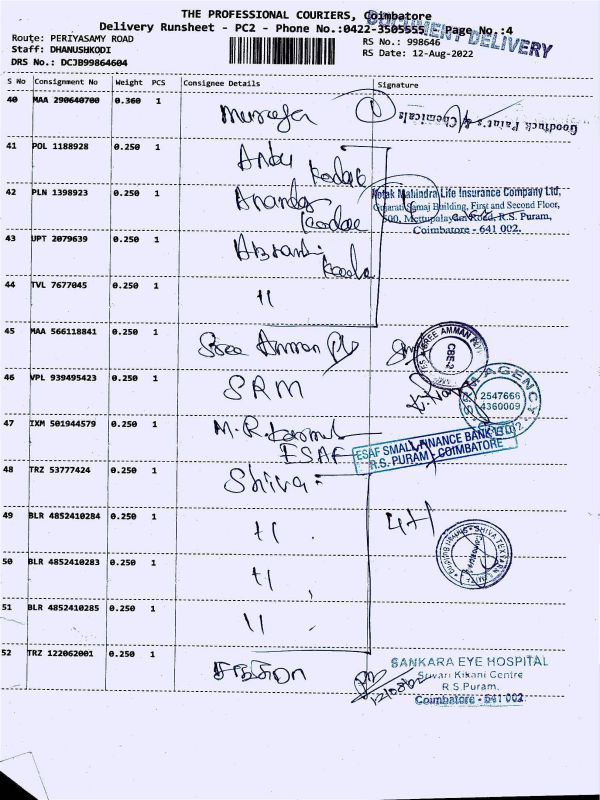 THE PROFESSIONAL COURIERS, Coimbatore
Delivery Runsheet - PC2 - Phone No.:0422-3505555 Page No.:4
DOCUMENT DELIVERY
Route: PERIYASAMY ROAD
RS No.: 998646
Staff: DHANUSHKODI
RS Date: 12-Aug-2022
DRS No.: DCJB99864604
S No Consignment No Weight PCS Consignee Details Signature
40 MAA 290640700 0.360 1
Goodluck Paint's & Chemicals
41 POL 1188928 0.250 1
42 PLN 1398923 0.250 1
Kotak Mahindra Life Insurance Company Ltd.
Gujarati Samaj Building, First and Second Floor,
500, Mettupalayam Road, R.S. Puram,
Coimbatore - 641 002.
43 UPT 2079639 0.250 1
44 TVL 7677045 0.250 1 11
45 MAA 566118841 0.250 1 Sree Amman
SREE AMMAN
CBE-2
46 VPL 939495423 0.250 1 SRM
AGENCY
2547666
4360009
47 IXM 501944579 0.250 1 M.R.
ESAF
ESAF SMALL FINANCE BANK LTD
R.S. PURAM - COIMBATORE
48 TRZ 53777424 0.250 1 Shiva
49 BLR 4852410284 0.250 1 11
SHIVA
50 BLR 4852410283 0.250 1 11
51 BLR 4852410285 0.250 1 11
52 TRZ 122062001 0.250 1
SANKARA EYE HOSPITAL
Suvari Kikani Centre
R.S Puram,
Coimbatore - 641 002